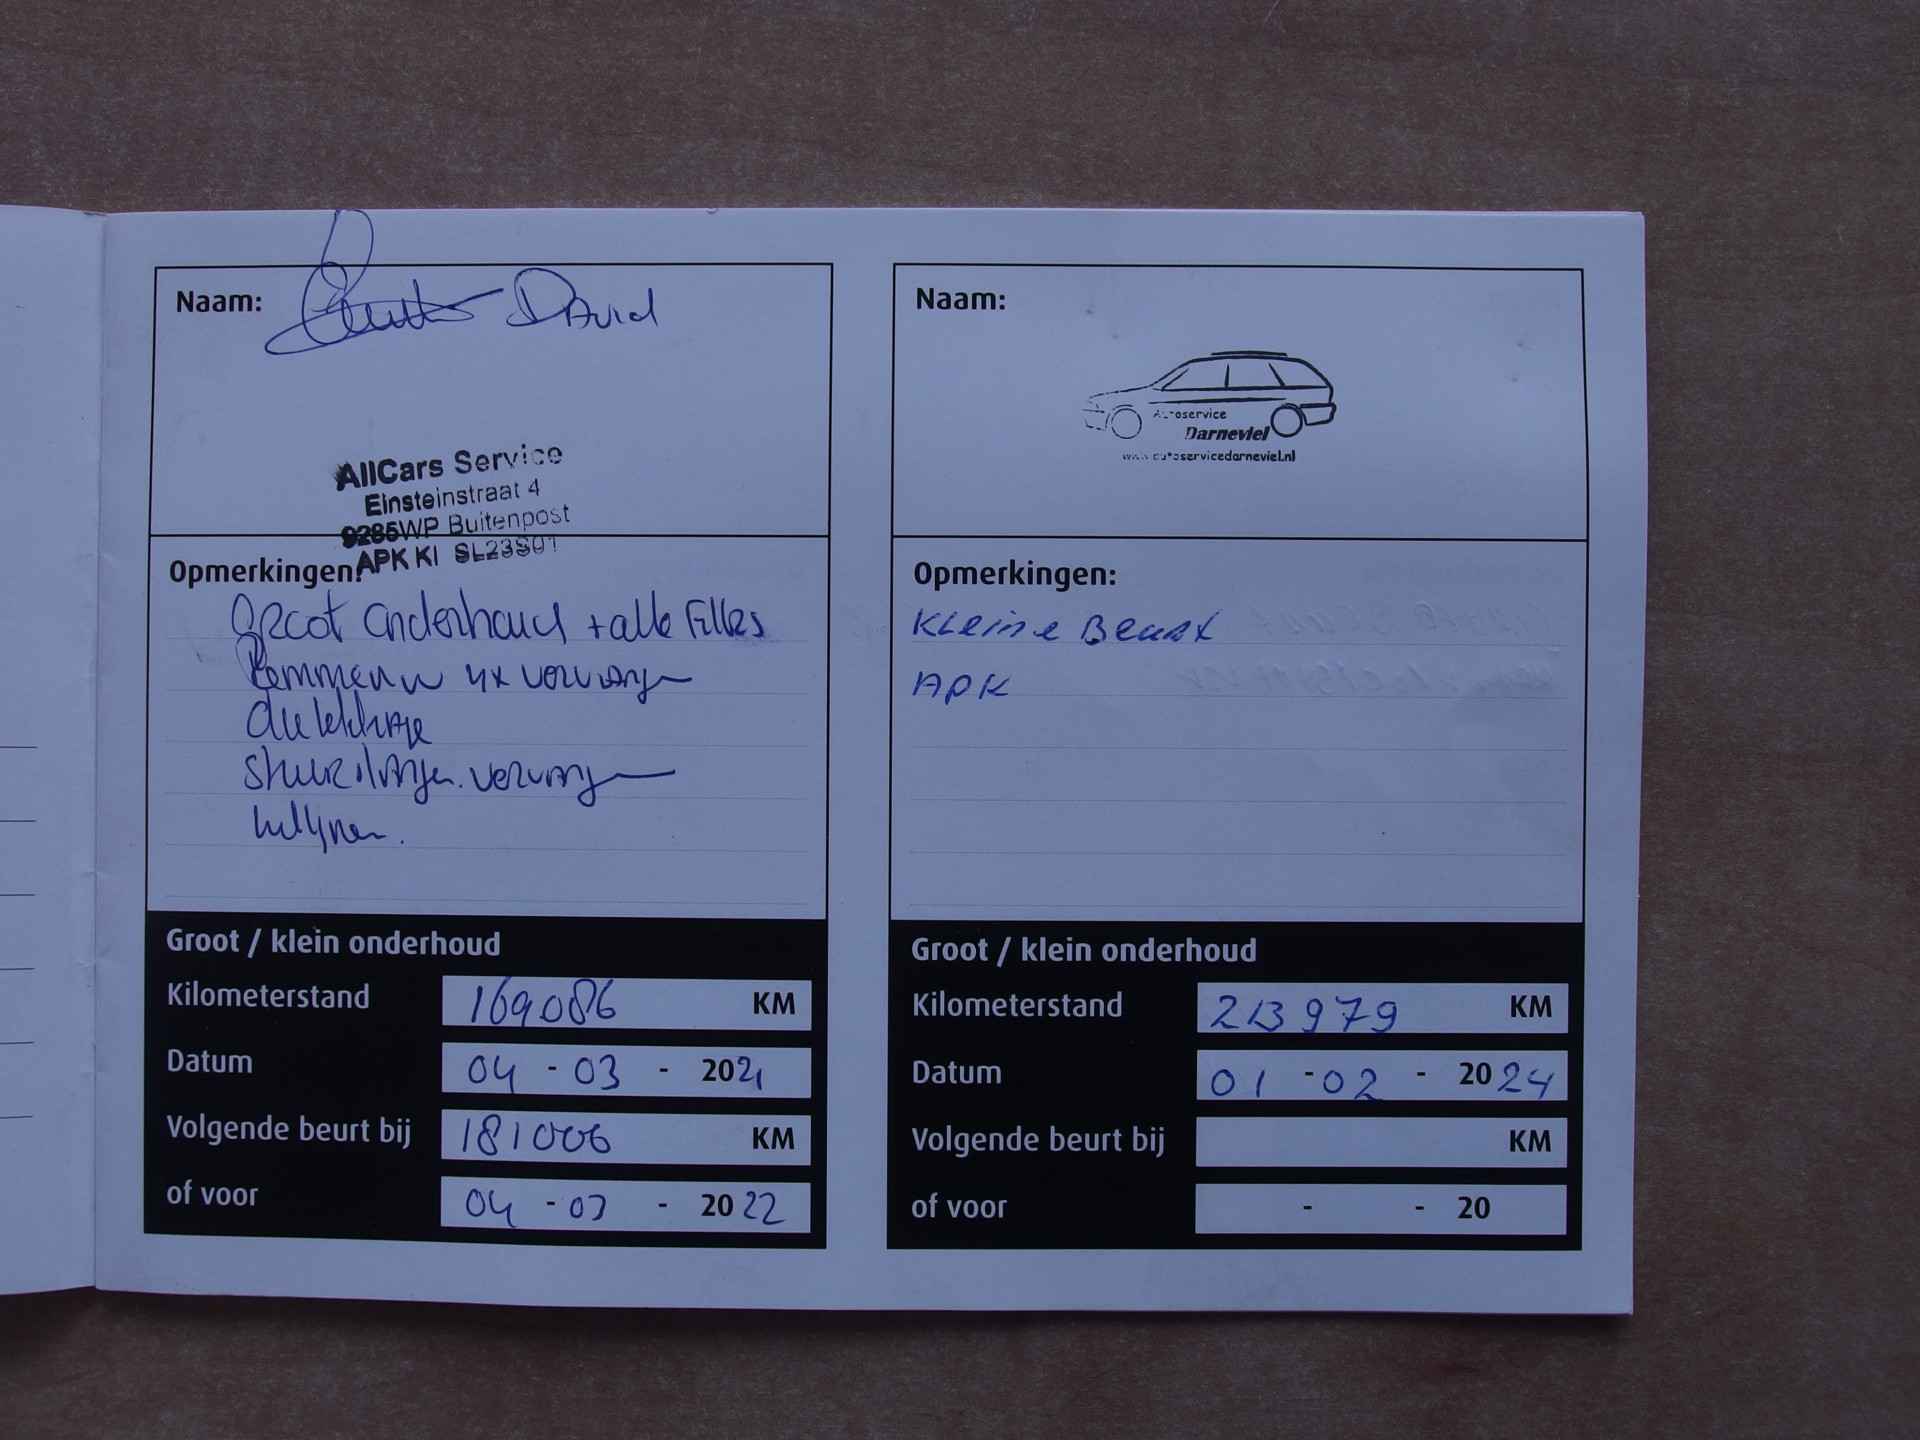 Naam: David
AllCars Service
Einsteinstraat 4
9285WP Buitenpost
APK KI SL23S01
Opmerkingen:
Groot onderhoud + alle Filters
Remmen 4x vervangen
vervangen
uitlijnen.
Groot / klein onderhoud
Kilometerstand 169086 KM
Datum 04 - 03 - 2021
Volgende beurt bij 181006 KM
of voor 04 - 03 - 2022
Naam:
Autoservice
Darneviel
www.autoservicedarneviel.nl
Opmerkingen:
Kleine Beurt
APK
Groot / klein onderhoud
Kilometerstand 213979 KM
Datum 01 - 02 - 2024
Volgende beurt bij KM
of voor - - 20